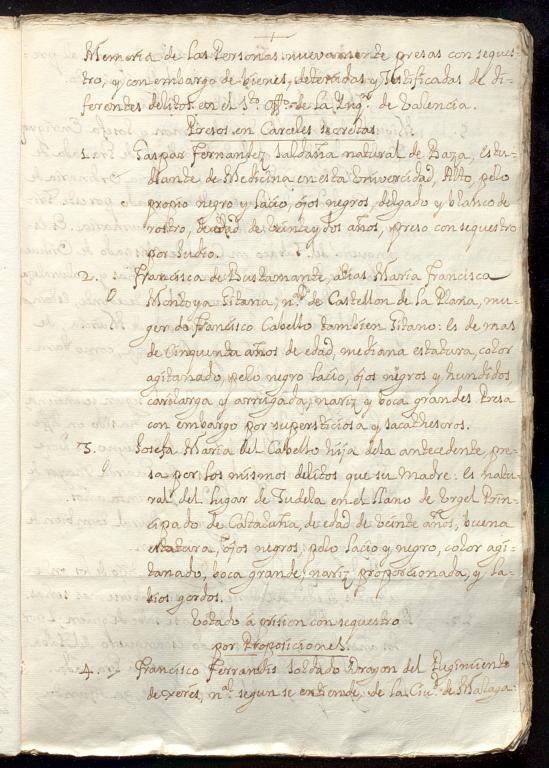 Memoria de las Personas nuevamente presas con seques-
tro, y con embargo de bienes, detenidas y Testificadas de di-
ferentes delitos en el S.to Off.o de la Inq.n de Valencia.
Presos en Carceles secretas
1. Gaspar Fernandez Saldaña natural de Baza, Estu-
diante de Medicina en esta Universidad, Alto, pelo
propio negro y lacio, ojos negros, delgado y blanco de
rostro, de edad de veinte y dos años, preso con sequestro
por Judio.
2. Francisca de Bustamante, alias Maria Francisca
Montoya Gitana, n.l de Castellon de la Plana, mu-
ger de Francisco Cabello tambien Gitano: es de mas
de Cinquenta años de edad, mediana estatura, color
agitanado, pelo negro lacio, ojos negros y hundidos
carilarga y arrugada, nariz y boca grandes Presa
con embargo por supersticiosa y sacathesoros.
3. Josefa Maria del Cabello hija dela antecedente, pre-
sa por los mismos delitos que su Madre: es natu-
ral del lugar de Tudela en el llano de Urgel Prin-
cipado de Cattaluña, de edad de veinte años, buena
estatura, ojos negros, pelo lacio y negro, color agi-
tanado, boca grande, nariz proporcionada, y la-
bios gordos.
Votado à prision con sequestro
por Proposiciones.
4. Francisco Ferrandis Soldado Dragon del Regimiento
de xerès, n.al segun se entiende, de la Ciu.d de Malaga: